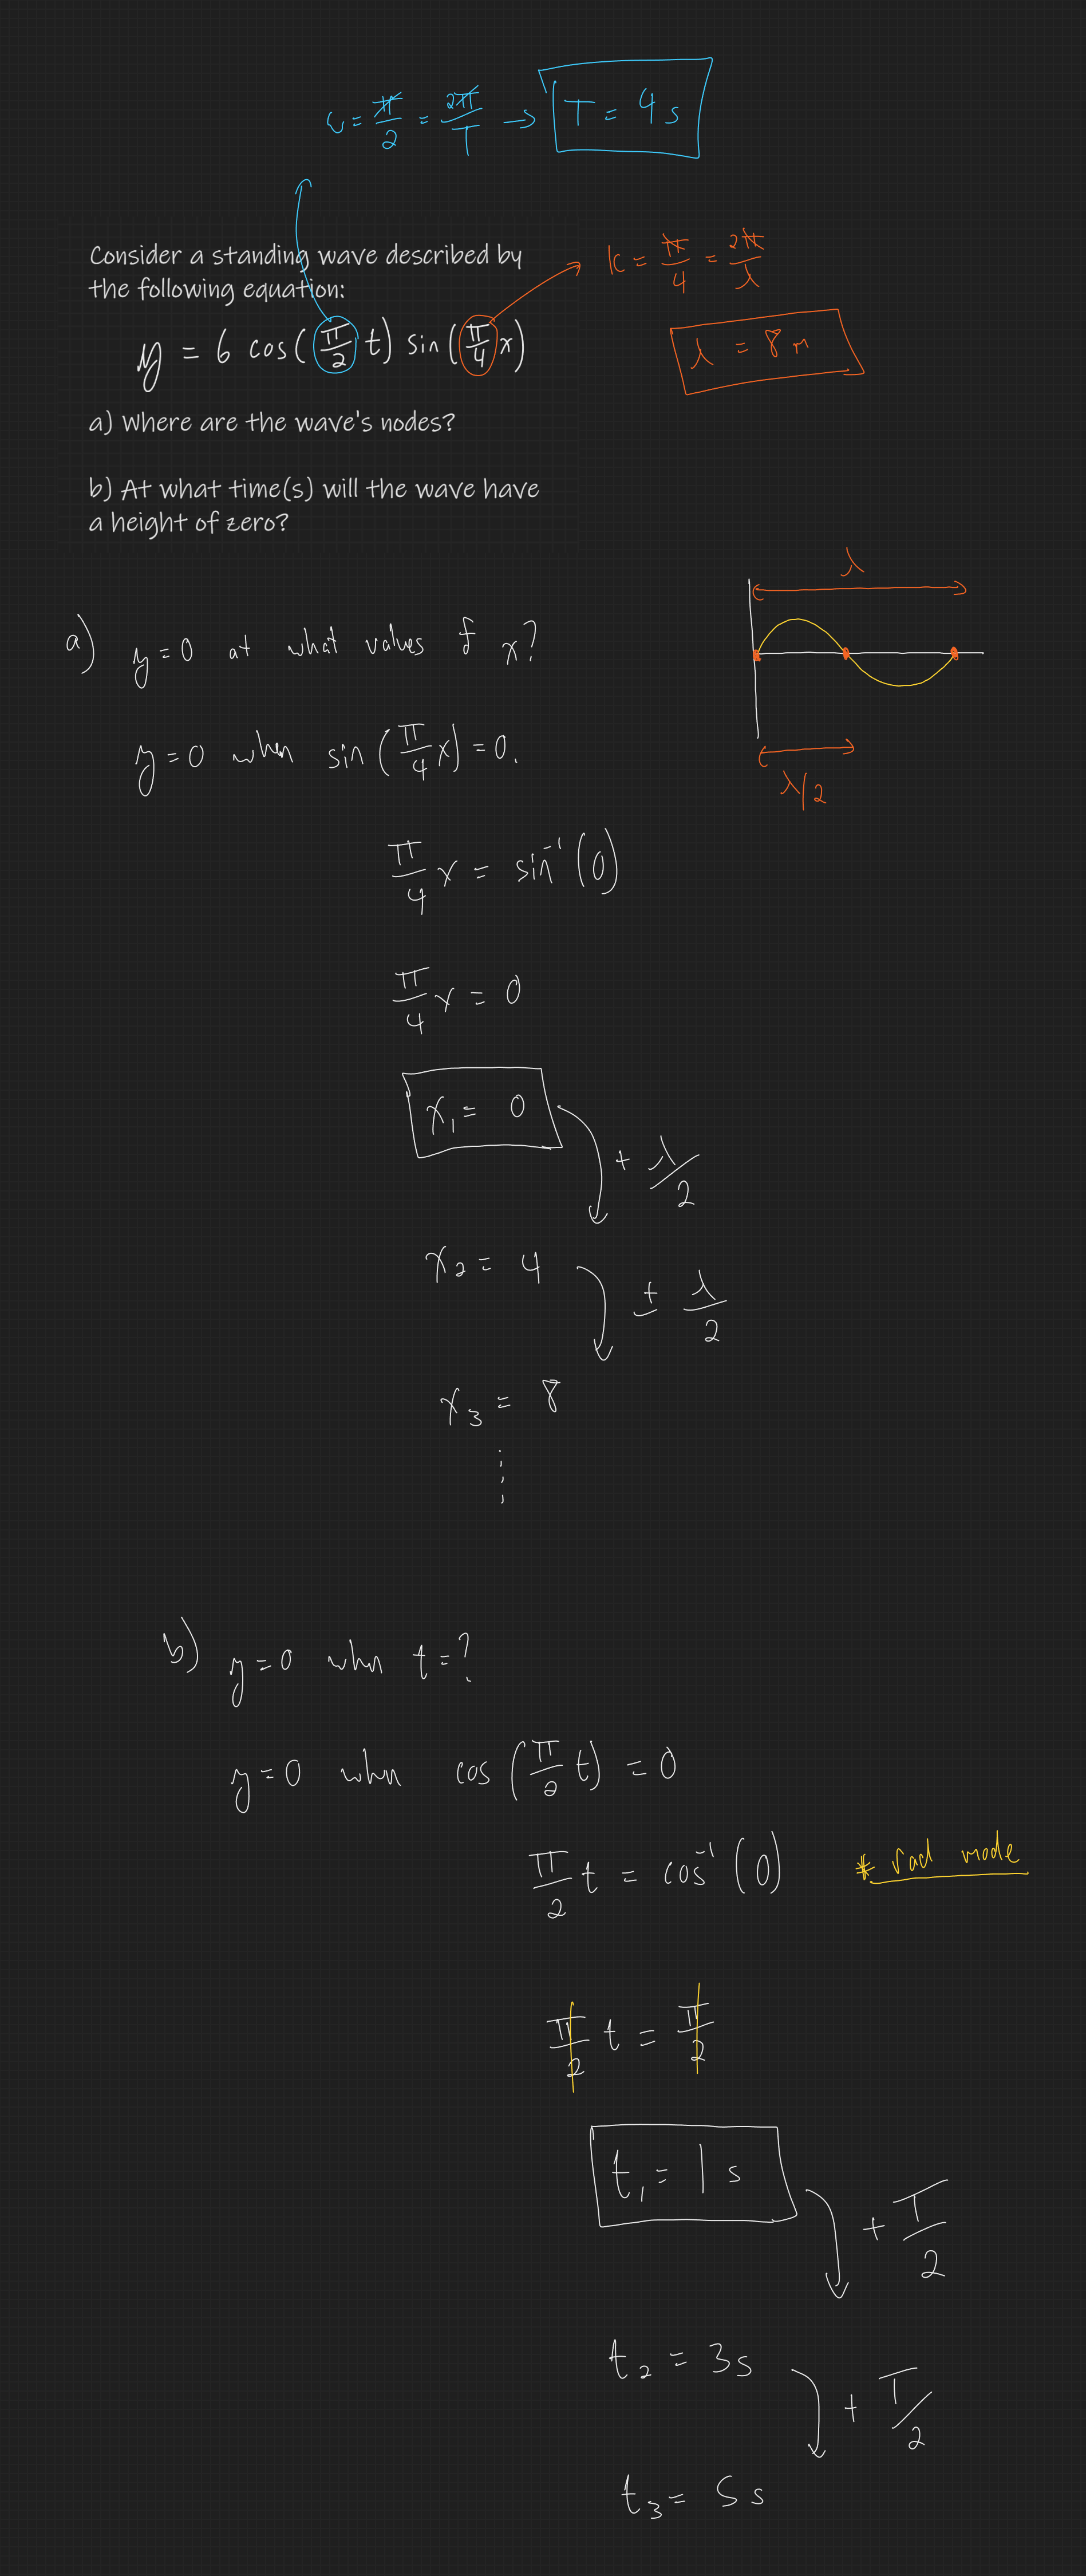 ω = π/2 = 2π/T → T = 4 s
Consider a standing wave described by
the following equation:
y = 6 cos(π/2 t) sin(π/4 x)
k = π/4 = 2π/λ
λ = 8 m
a) Where are the wave's nodes?
b) At what time(s) will the wave have
a height of zero?
λ
λ/2
a) y=0 at what values of x?
y=0 when sin(π/4 x)=0.
π/4 x = sin⁻¹(0)
π/4 x = 0
x₁ = 0
+ λ/2
x₂ = 4
+ λ/2
x₃ = 8
b) y=0 when t=?
y=0 when cos(π/2 t) = 0
π/2 t = cos⁻¹(0) * rad mode
π/2 t = π/2
t₁ = 1 s
+ T/2
t₂ = 3s
+ T/2
t₃ = 5 s